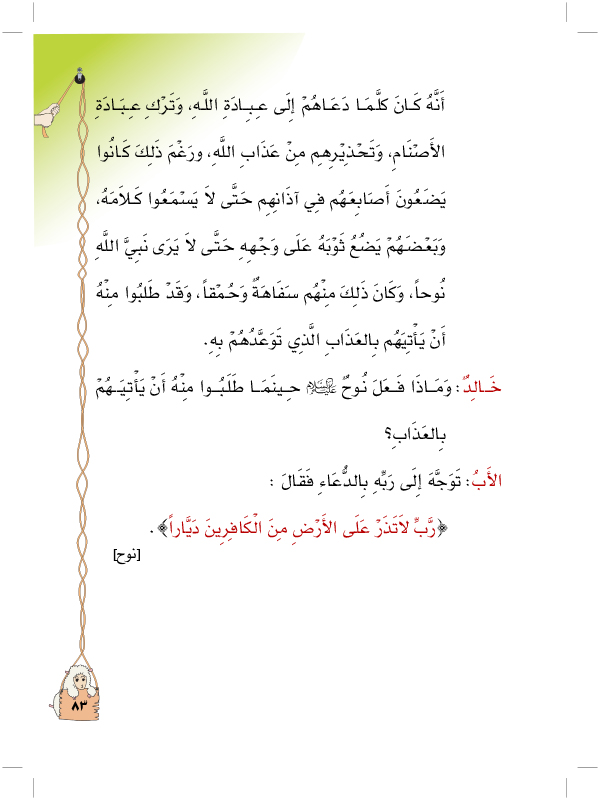 أَنَّهُ كَانَ كلَّمَا دَعَاهُمْ إِلَى عِبَادَةِ اللَّهِ، وَتَرْكِ عِبَادَةِ
الأَصْنَامِ، وَتَحْذِيْرِهِم مِنْ عَذَابِ اللَّهِ، ورَغْمَ ذَلِكَ كَانُوا
يَضَعُونَ أَصَابِعَهُم فِي آذَانِهِم حَتَّى لاَ يَسْمَعُوا كَلاَمَهُ،
وَبَعْضَهُمْ يَضَعُ ثَوْبَهُ عَلَى وَجْهِهِ حَتَّى لاَ يَرَى نَبِيَّ اللَّهِ
نُوحاً، وَكَانَ ذَلِكَ مِنْهُم سَفَاهَةً وَحُمْقاً، وَقَدْ طَلَبُوا مِنْهُ
أَنْ يَأْتِيَهُم بِالعَذَابِ الَّذِي تَوَعَّدُهُمْ بِهِ.
خَالِدٌ: وَمَاذَا فَعَلَ نُوحٌ عليه السلام حِينَمَا طَلَبُوا مِنْهُ أَنْ يَأْتِيَهُمْ
بِالعَذَابِ؟
الأَبُ: تَوَجَّهَ إِلَى رَبِّهِ بِالدُّعَاءِ فَقَالَ :
﴿رَّبِّ لاَتَذَرْ عَلَى الأَرْضِ مِنَ الْكَافِرِينَ دَيَّاراً﴾.
[نوح]
٨٣